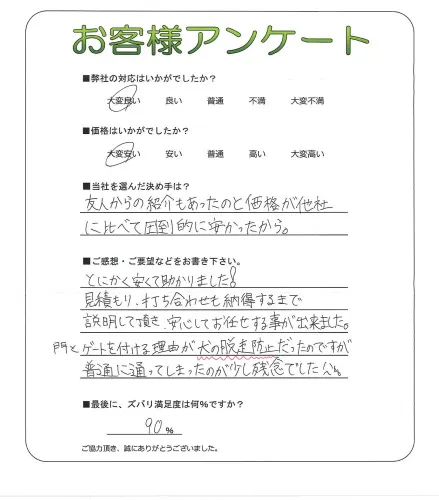 お客様アンケート
■弊社の対応はいかがでしたか?
大変良い 良い 普通 不満 大変不満
■価格はいかがでしたか?
大変安い 安い 普通 高い 大変高い
■当社を選んだ決め手は?
友人からの紹介もあったのと価格が他社
に比べて圧倒的に安かったから。
■ご感想・ご要望などをお書き下さい。
とにかく安くて助かりました!
見積もり、打ち合わせも納得するまで
説明して頂き、安心してお任せする事が出来ました。
門とゲートを付ける理由が犬の脱走防止だったのですが
普通に通ってしまったのが少し残念でした
■最後に、ズバリ満足度は何%ですか?
90%
ご協力頂き、誠にありがとうございました。